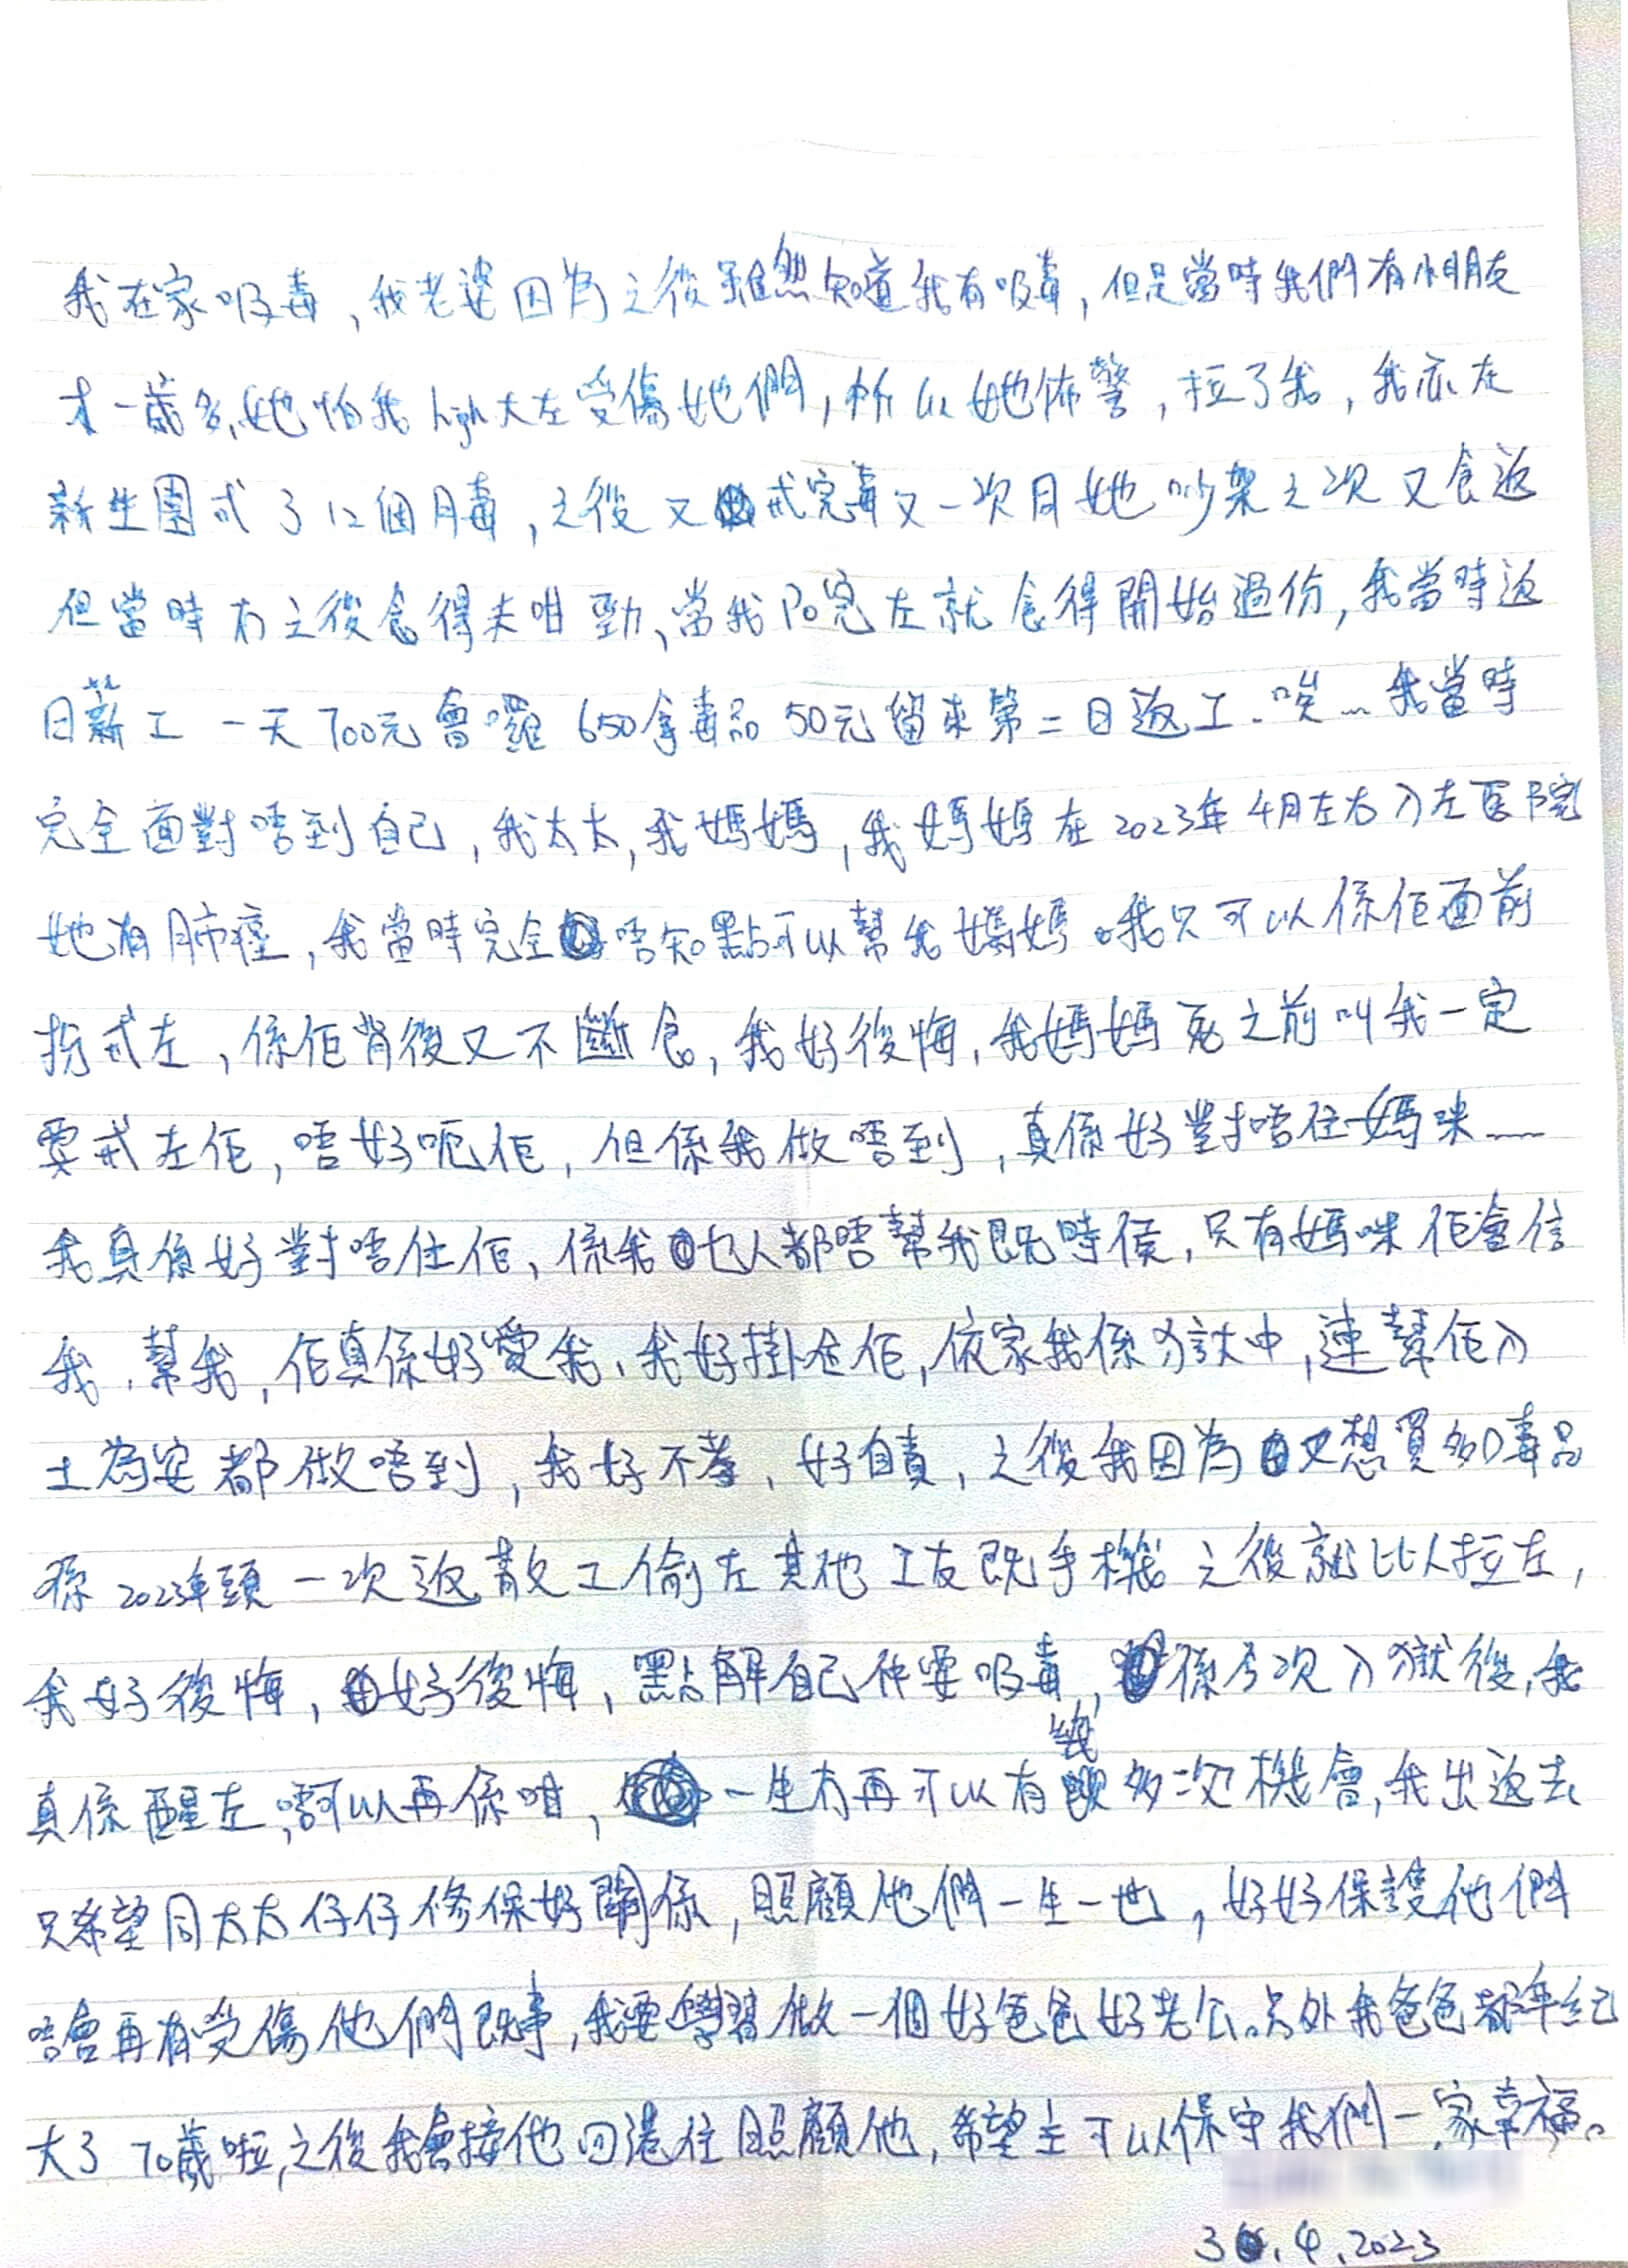 我在家吸毒，我老婆因為之後雖然知道我有吸毒，但是當時我們有小朋友
才一歲多，她怕我high大左受傷她們，所以她佈警，拉了我，我亦在
新生團戒了12個月毒，之後又戒完毒又一次同她吵架之次又食返
但當時冇之後食得未咁勁、當我Po完左就食得開始過份，我當時返
日薪工一天700元會囉650拿毒品50元留來第二日返工.唉...我當時
完全面對唔到自己，我太太，我媽媽，我媽媽在2023年4月左右入左医院
她有肺癌，我當時完全唔知點可以幫我媽媽。我只可以係佢面前
扮戒左，係佢背後又不斷食，我好後悔，我媽媽死之前叫我一定
要戒左佢，唔好呃佢，但係我做唔到，真係好對唔住媽咪......
我真係好對唔住佢、係我乜人都唔幫我既時候，只有媽咪佢會信
我，幫我，佢真係好愛我、我好掛念佢，依家我係獄中，連幫佢入
土為安都做唔到，我好不孝，好自責，之後我因為又想買多D毒品
係2023年頭一次返散工偷左其他工友既手機之後就比人拉左，
我好後悔，好後悔，點解自己仲要吸毒，係今次入獄後，我
真係醒左，唔可以再係咁，一生冇再可以有幾多次機會，我出返去
只希望同太太仔仔修保好關係，照顧他們一生一世，好好保護他們
唔會再有受傷他們既事，我要學習做一個好爸爸好老公。另外我爸爸都年紀
大了70歲啦，之後我會接他回港住照顧他，希望主可以保守我們一家幸福。
30.4.2023